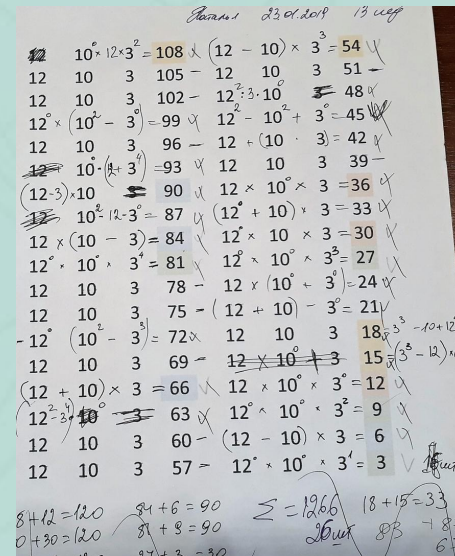 23.01.2019 13
10⁰ × 12 × 3² = 108 (12 − 10) × 3³ = 54
12 10 3 105 − 12 10 3 51 −
12 10 3 102 − 12² : 3 · 10⁰ 48
12⁰ × (10² − 3⁰) = 99 12² − 10² + 3⁰ = 45
12 10 3 96 − 12 + (10 · 3) = 42
10⁰ · (12 + 3⁴) = 93 12 10 3 39 −
(12−3) × 10 90 12 × 10⁰ × 3 = 36
10² − 12 − 3⁰ = 87 (12⁰ + 10) × 3 = 33
12 × (10 − 3) = 84 12⁰ × 10 × 3 = 30
12⁰ × 10⁰ × 3⁴ = 81 12⁰ × 10⁰ × 3³ = 27
12 10 3 78 − 12 × (10⁰ + 3⁰) = 24
12 10 3 75 − (12 + 10) − 3⁰ = 21
− 12⁰ (10² − 3³) = 72 12 10 3 18 = 3³ − 10 + 12⁰
12 10 3 69 − 12 × 10⁰ + 3 15 = (3³ − 12) ×
(12 + 10) × 3 = 66 12 × 10⁰ × 3⁰ = 12
(12² − 3⁴) · 10⁰ 3 63 12⁰ × 10⁰ × 3² = 9
12 10 3 60 − (12 − 10) × 3 = 6
12 10 3 57 − 12⁰ × 10⁰ × 3¹ = 3
8 + 12 = 120 84 + 6 = 90 Σ = 1266 18 + 15 = 33
0 + 30 = 120 81 + 9 = 90 26 шт 83